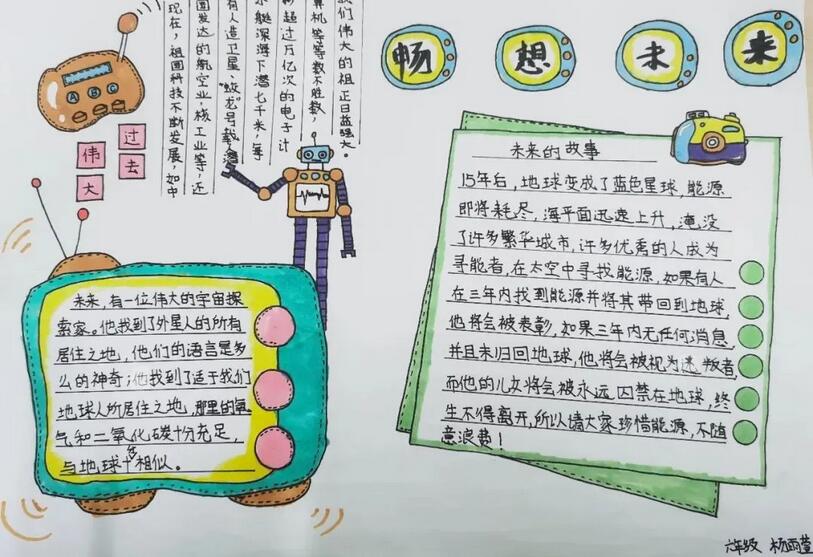 畅想未来
过去
伟大
现在，祖国科技不断发展，如中
国发达的航空业，核工业等，还
有人造卫星、“蛟龙”号载人潜
水艇深海下潜七千米，每
秒超过万亿次的电子计
算机等等数不胜数，
我们伟大的祖正日益强大。
未来，有一位伟大的宇宙探
索家。他找到了外星人的所有
居住之地，他们的语言是多
么的神奇；他找到了适于我们
地球人所居住之地，那里的氧
气和二氧化碳十分充足，
与地球十分相似。
未来的故事
15年后，地球变成了蓝色星球，能源
即将耗尽，海平面迅速上升，淹没
了许多繁华城市，许多优秀的人成为
寻能者，在太空中寻找能源，如果有人
在三年内找到能源并将其带回到地球，
他将会被表彰，如果三年内无任何消息，
并且未归回地球，他将会被视为逃叛者，
而他的儿女将会被永远囚禁在地球，终
生不得离开，所以请大家珍惜能源，不随
意浪费！
六年级 杨雨萱